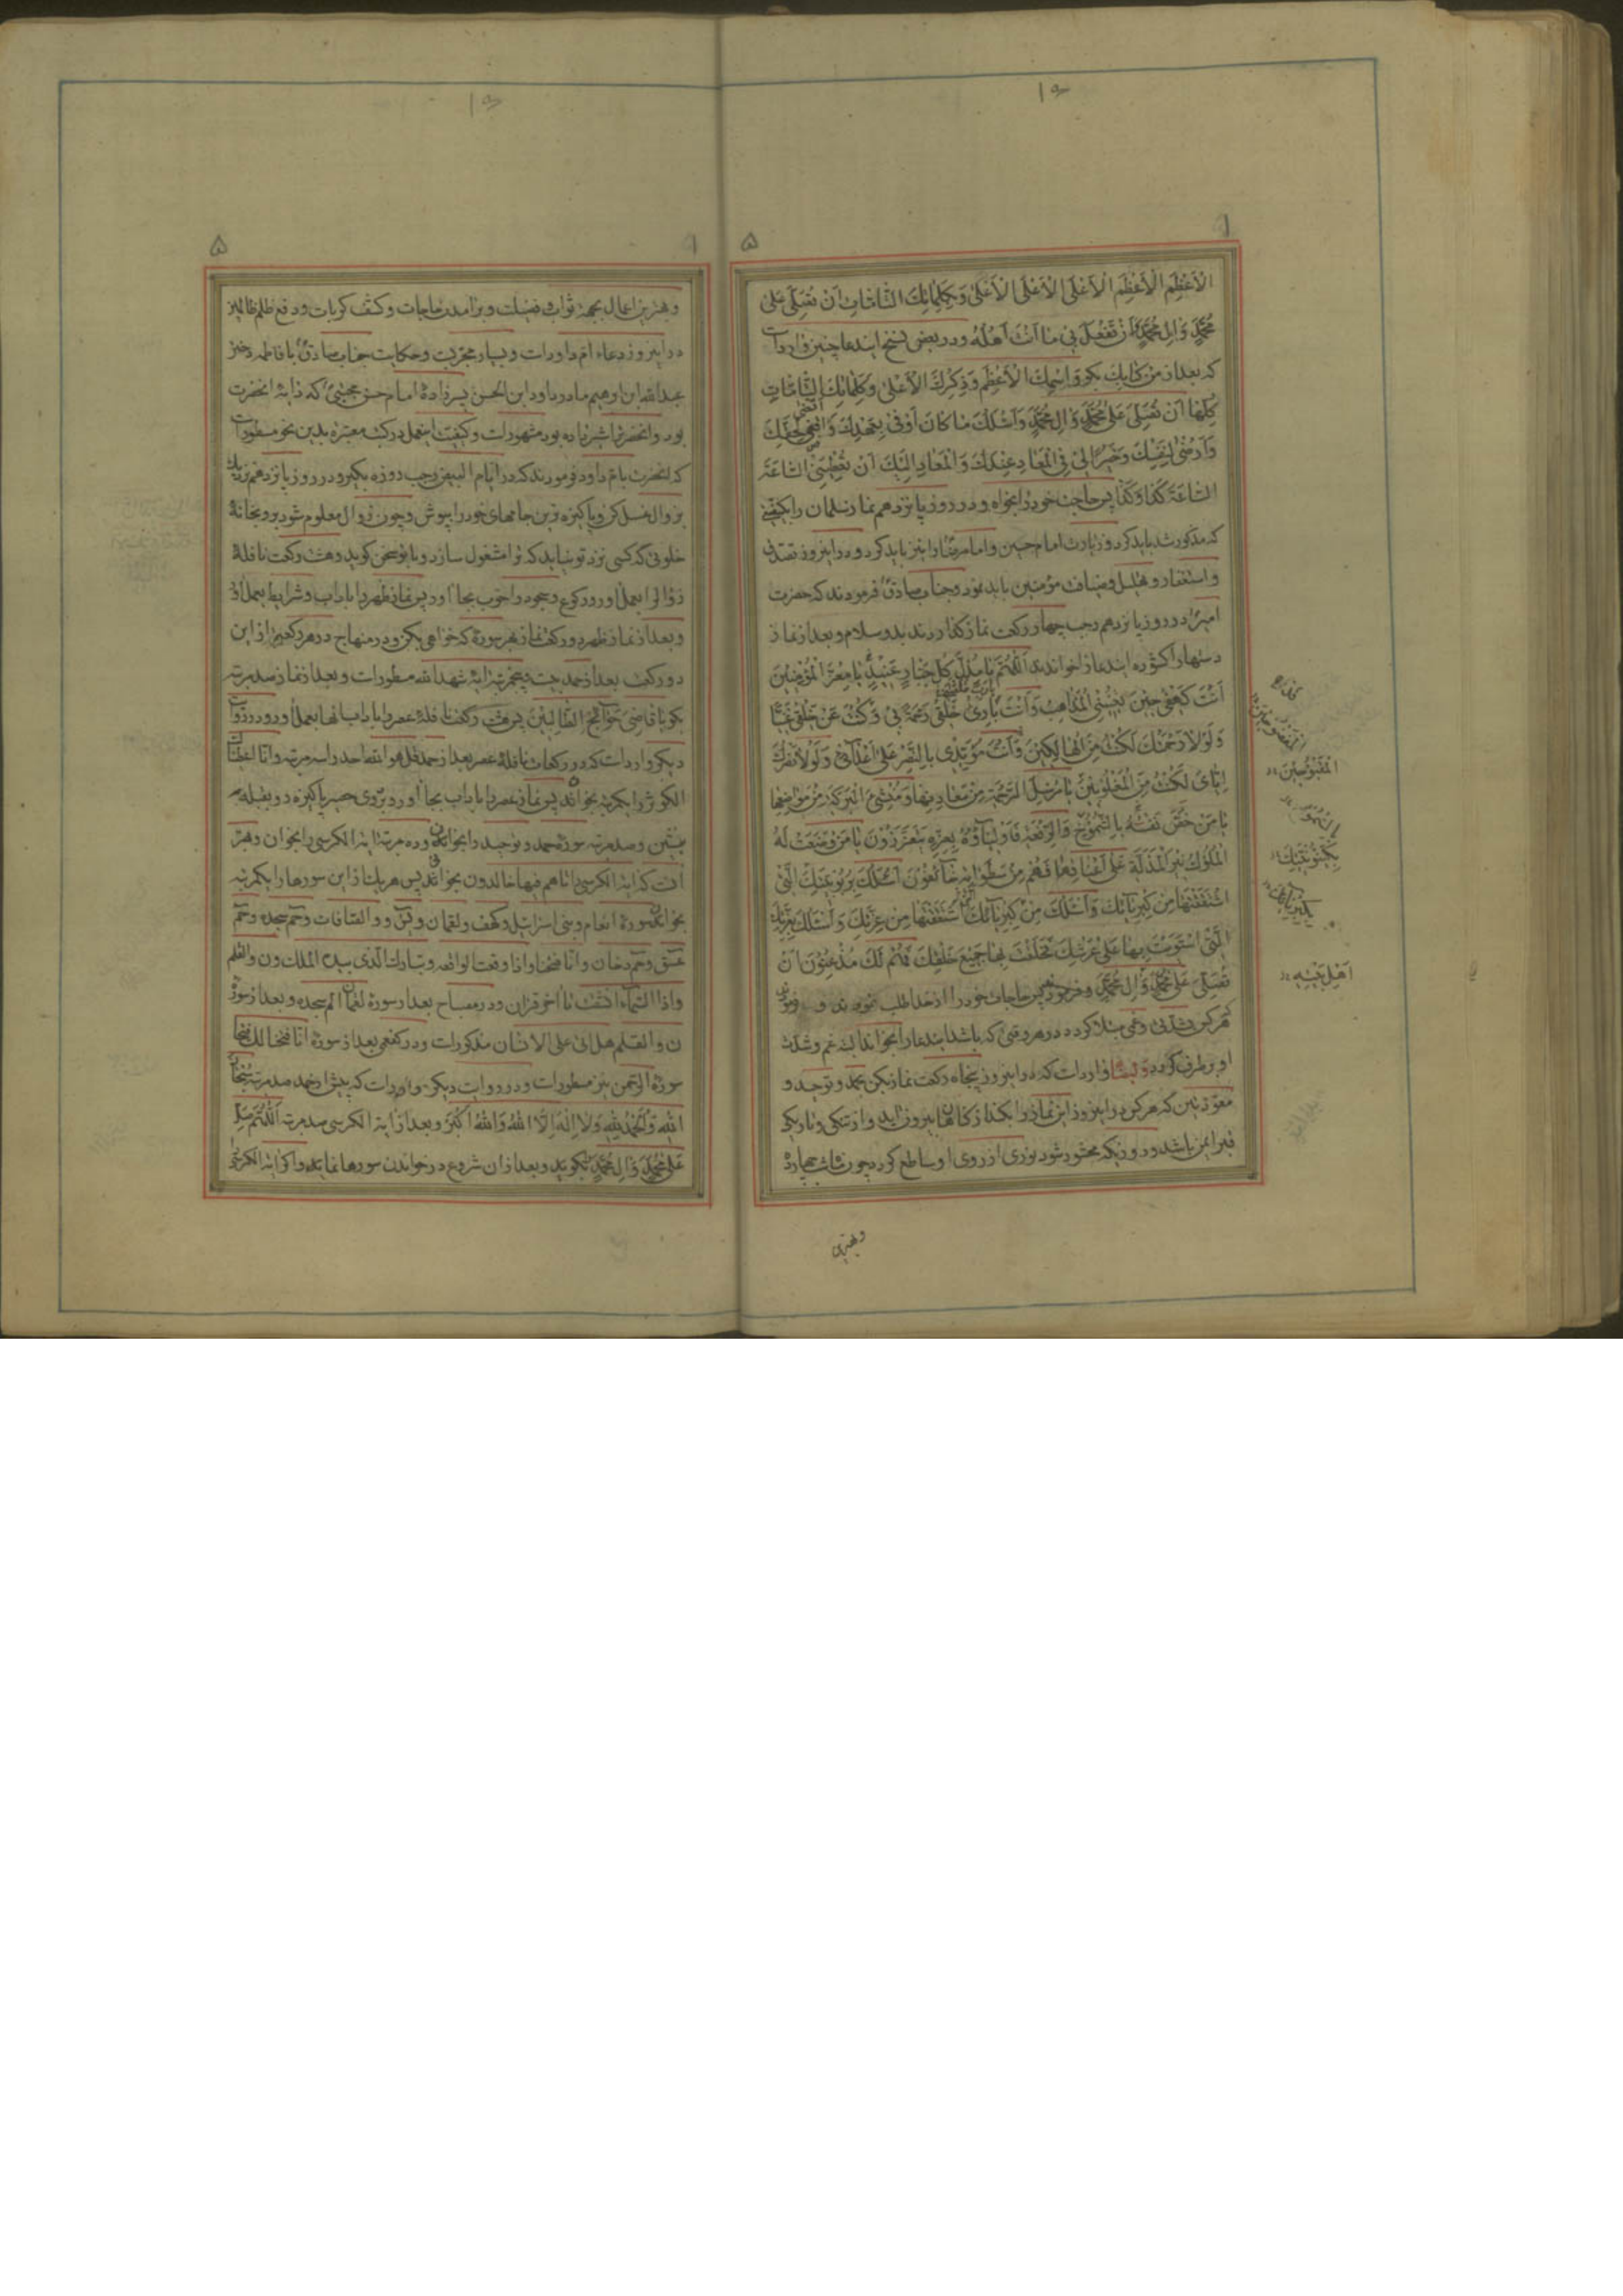 الْاَعْظَمِ الْاَعْظَمِ الْاَعْلَى الْاَعْلَى الْاَعْلَى وَبِكَلِمَاتِكَ التَّامَّاتِ اَنْ تُصَلِّيَ عَلَى
مُحَمَّدٍ وَالِ مُحَمَّدٍ وَاَنْ تَفْعَلَ بِي مَا اَنْتَ اَهْلُهُ ودر بعض نسخ ایندعا چنین وارداست
که بعد از من کتابك بكو وَاسْمِكَ الْاَعْظَمِ وَذِكْرِكَ الْاَعْلى وَكَلِمَاتِكَ التَّامَّاتِ
كُلِّهَا اَنْ تُصَلِّيَ عَلى مُحَمَّدٍ وَالِ مُحَمَّدٍ وَاَسْئَلُكَ مَا كَانَ اَوْفى بِعَهْدِكَ وَاقضى لِحَقِّكَ
وَاَرْضى لِنَفْسِكَ وَخَيْرًا لِي فِي الْمَعَادِ عِنْدَكَ وَالْمَعَادِ اِلَيْكَ اَنْ تُعْطِيَنِي السَّاعَةَ
السَّاعَةَ كَذَا وَكَذَا پس حاجت خود را بخواه و در روز پانزدهم نماز سلمان را بکیفیتی
که مذکور شد باید کرد و زیارت امام حسین وامام رضا را نیز باید کرد و در اینروز تصدق
و استغفار و تهلیل و ضیافت مؤمنین باید نمود وجناب صادق فرمودند که حضرت
امیر در روز پانزدهم رجب چهار رکعت نماز گذاردند بدو سلام و بعد از نماز
دستها را کشوده ایندعا را خواندند اَللّهُمَّ يَا مُذِلَّ كُلِّ جَبَّارٍ عَنِيدٍ يَا مُعِزَّ الْمُؤْمِنِينَ
اَنْتَ كَهْفِي حِينَ تُعْيِينِي الْمَذَاهِبُ وَاَنْتَ بَارِئُ خَلْقِي رَحْمَةً بِي وَكُنْتَ عَنْ خَلْقِي غَنِيًّا
وَلَوْلَا رَحْمَتُكَ لَكُنْتُ مِنَ الْهَالِكِينَ وَاَنْتَ مُؤَيِّدِي بِالنَّصْرِ عَلى اَعْدَائِي وَلَوْلَا نَصْرُكَ
اِيَّايَ لَكُنْتُ مِنَ الْمَغْلُوبِينَ يَا مُرْسِلَ الرَّحْمَةِ مِنْ مَعَادِنِهَا وَمُنْشِئَ الْبَرَكَةِ مِنْ مَوَاضِعِهَا
يَا مَنْ خَصَّ نَفْسَهُ بِالشُّمُوخِ وَالرِّفْعَةِ فَاَوْلِيَاؤُهُ بِعِزِّهِ يَتَعَزَّزُونَ يَا مَنْ وَضَعَتْ لَهُ
الْمُلُوكُ نِيرَ الْمَذَلَّةِ عَلى اَعْنَاقِهَا فَهُمْ مِنْ سَطَوَاتِهِ خَائِفُونَ اَسْئَلُكَ بِرُبُوبِيَّتِكَ الَّتِي
اشْتَقَقْتَهَا مِنْ كِبْرِيَائِكَ وَاَسْئَلُكَ مِنْ كِبْرِيَائِكَ الَّتِي اشْتَقَقْتَهَا مِنْ عِزَّتِكَ وَاَسْئَلُكَ بِعِزَّتِكَ
الَّتِي اسْتَوَيْتَ بِهَا عَلى عَرْشِكَ فَخَلَقْتَ بِهَا جَمِيعَ خَلْقِكَ فَهُمْ لَكَ مُذْعِنُونَ اَنْ
تُصَلِّيَ عَلى مُحَمَّدٍ وَالِ مُحَمَّدٍ پس حاجات خود را از خدا طلب نمودند و فرمودند
هر کس بشدتی وغمی مبتلا کردد در هر وقتی که باشد ایندعا را بخواند البته غم وشدت
او بر طرف کردد وایضا وارداست که در اینروز پنجاه رکعت نماز بکن بحمد و توحید و
معوذتین که هر کس در اینروز این نماز را بکند از گناهان بیرون اید و از تنکی و تاریکی
قبر ایمن باشد و روزیکه محشور شود نوری از روی او ساطع کردد چون شب چهارده
وبهترین
المَقْبُوحِينَ
بِكَيْنُونِيَّتِكَ
بِكِبْرِيَائِكَ
اَهْلِ بَيْتِهِ
وبهترین اعمال بجهة ثواب وفضیلت و برامدن حاجات وکشف کربات ودفع ظلم ظالمین
در اینروز دعاء ام داوداست و بسیار مجربست وحکایت جناب صادق با فاطمه دختر
عبدالله ابن ابرهیم مادر داود ابن الحسن پسرزادهٔ امام حسن مجتبی که دایهٔ انحضرت
بود وانحضرت را شیر داده بود مشهوراست وکیفیت اینعمل در کتب معتبره بدین نحو مسطوراست
که انحضرت بام داود فرمودند که در ایام البیض رجب روزه بکیر و در روز پانزدهم نزدیك
بزوال غسل کن و پاکیزه ترین جامهای خود را بپوش وچون زوال معلوم شود برو بخانهٔ
خلوتی که کسی نزد تو نیاید که ترا مشغول سازد و با تو سخن کوید وهشت رکعت نافلهٔ
زوال را بعمل اور ورکوع وسجود را خوب بجا اور پس نماز ظهر را باداب وشرایط بعمل اور
وبعد از نماز ظهر دو رکعت نماز بهر سورهٔ که خواهی بکن و در منهاج در هر رکعتی از این
دو رکعت بعد از حمد بیست وپنجمرتبه ایهٔ شهد الله مسطوراست وبعد از نماز صد مرتبه
بكو يَا قَاضِيَ حَوَائِجِ الطَّالِبِينَ پس هشت رکعت نافلهٔ عصر را باداب انها بعمل اور ودر روایت
دیکر وارداست که در رکعات نافلهٔ عصر بعد از حمد قل هو الله احد را سه مرتبه وانا اعطیناك
الکوثر را یکمرتبه بخواند پس نماز عصر را باداب بجا اور و بر روی حصیر پاکیزه رو بقبله
بنشین وصد مرتبه سورهٔ حمد و توحید را بخوان وده مرتبه ایة الکرسی را بخوان وبهتر
انست که ایة الکرسی را تا هم فیها خالدون بخوانی پس هر یك از این سورها را یکمرتبه
بخوان سورهٔ انعام وبنی اسرائیل وکهف ولقمان ویس ووالصافات وحم سجده وحم
عسق وحم دخان وانا فتحنا واذا وقعت الواقعه وتبارك الذی بیده الملك ون والقلم
واذا السماء انشقت تا اخر قران ودر مصباح بعد از سورهٔ لقمان الم سجده وبعد از سورهٔ
ن والقلم هل اتی علی الانسان مذکوراست ودر کفعمی بعد از سورهٔ انا فتحنا لك فتحا
سورهٔ الرحمن نیز مسطوراست ودر روایت دیکر وارداست که پیش از حمد صد مرتبه سُبْحَانَ
اللهِ وَالْحَمْدُ لِلّهِ وَلَا اِلهَ اِلَّا اللهُ وَاللهُ اَكْبَرُ وبعد از ایة الکرسی صد مرتبه اَللّهُمَّ صَلِّ
عَلى مُحَمَّدٍ وَالِ مُحَمَّدٍ بکوید وبعد از ان شروع در خواندن سورها نماید واکر ایة الکرسی